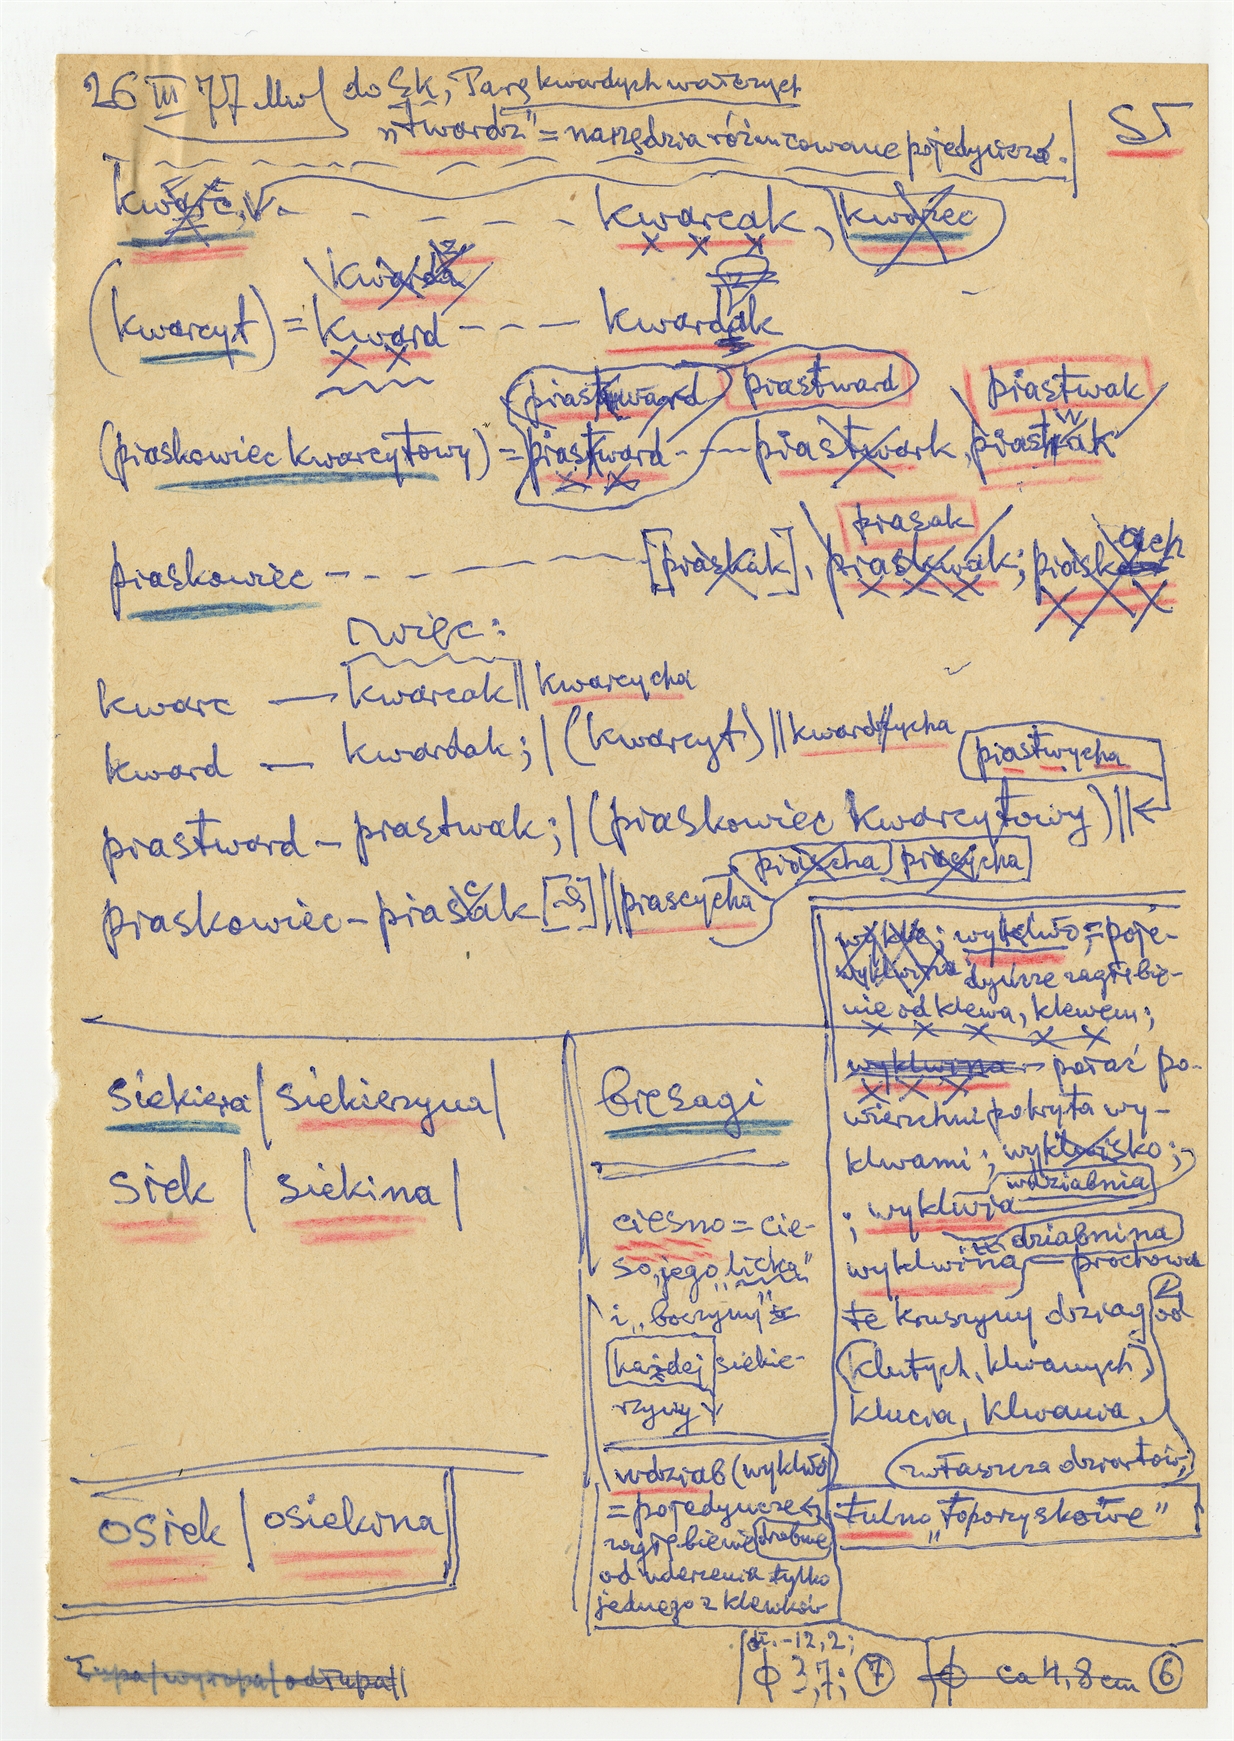 26 III 77 Mw do Sk, Parę kwardych warczych
„twardz" = narzędzia różnicowane pojedyncze. ST
kwarc, v. - - - - kwarcak, kwarzec
kwarda
(kwarcyt) = kward - - - kwardak
piaskward piastward piastwak
(piaskowiec kwarcytowy) = piastward - - - piastwark, piastwak
piasak
piaskowiec - - - - [piaskak], piaskwak; piaskach
więc:
kwarc — kwarcak || kwarcycha
kward — kwardak; | (kwarcyt) || kwardycha
piastwycha
piastward - piastwak; | (piaskowiec kwarcytowy) ||
piascha piasycha
piaskowiec - piasak [-s] || piascycha
wyklwo; = poje-
wyklwina dyncze zagłębie-
nie od klewa, klewem;
wyklwina - połać po-
wierzchni pokryta wy-
klwami; wyklwisko;
wdziabnia
; wyklwia
dziabnina
wyklwina prochowa
te kruszyny drzazg od
(klutych, klwanych)
klucia, klwania,
zwłaszcza dziortów;
siekiera | siekierzyna |
siek | siekina |
biesagi
ciesno = cie-
so, jego „licka"
i „boczyny"
każdej siekie-
rzyny v
wdziab (wyklwo)
= pojedyncze,
zagłębienie drobne
od uderzenia tylko
jednego z klewków
tulno „toporzyskowe"
osiek | osiekina
łupa / wyłupa / odłupa ||
dł. - 12,2;
ϕ 3,7; 7 ϕ ca 4,8 cm 6